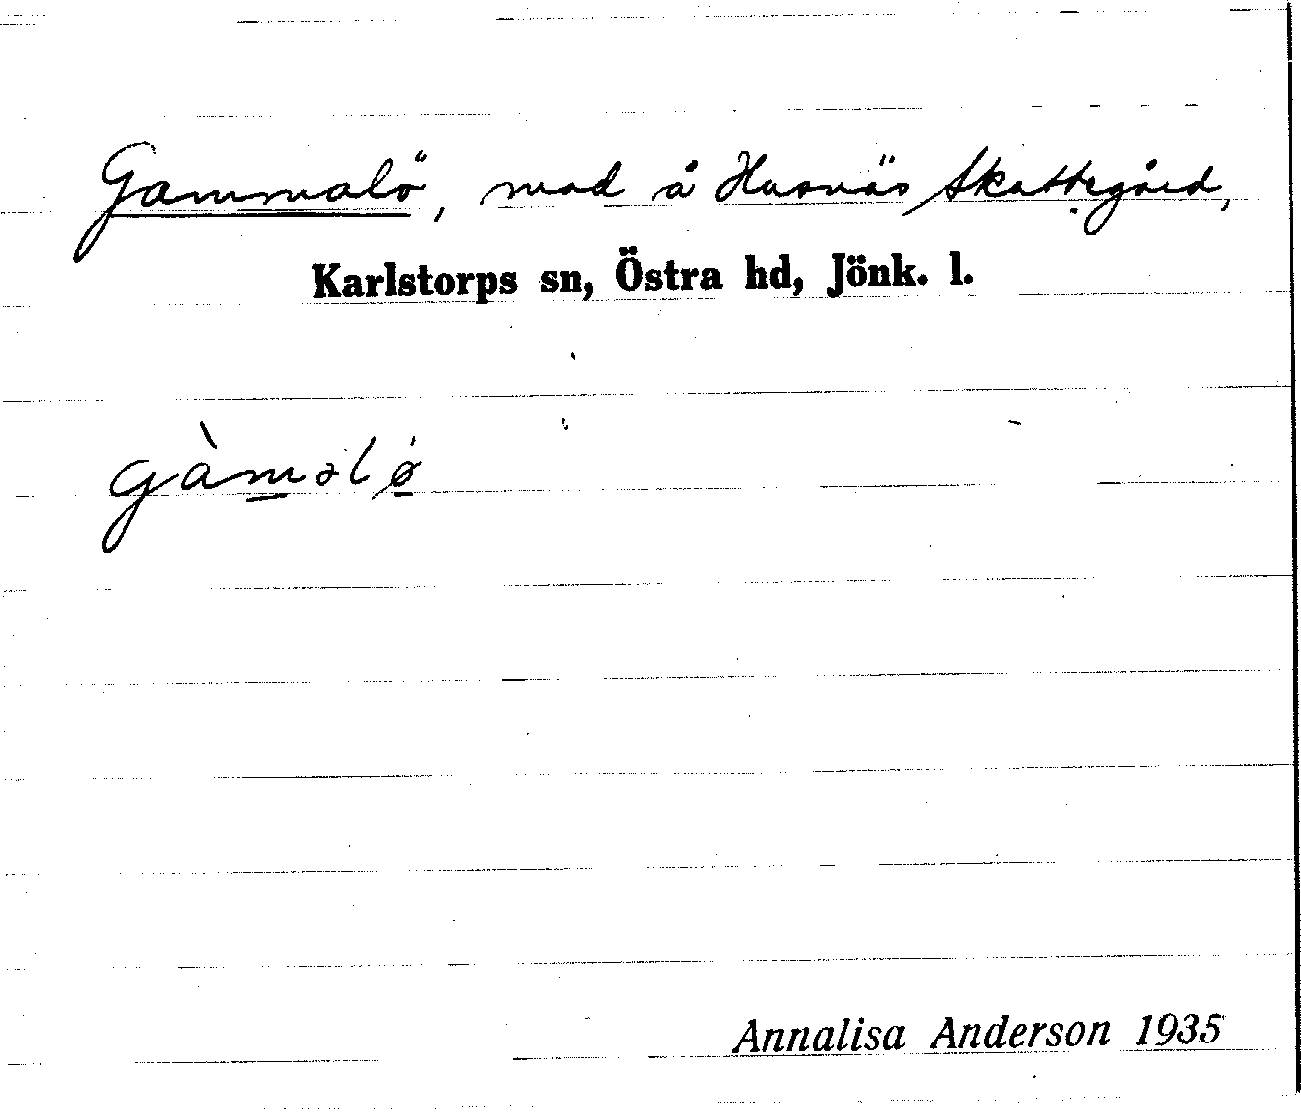 Gammalö, mad å Husnäs Skattegård,
Karlstorps sn, Östra hd, Jönk. l.
gàmǝlø
Annalisa Anderson 1935